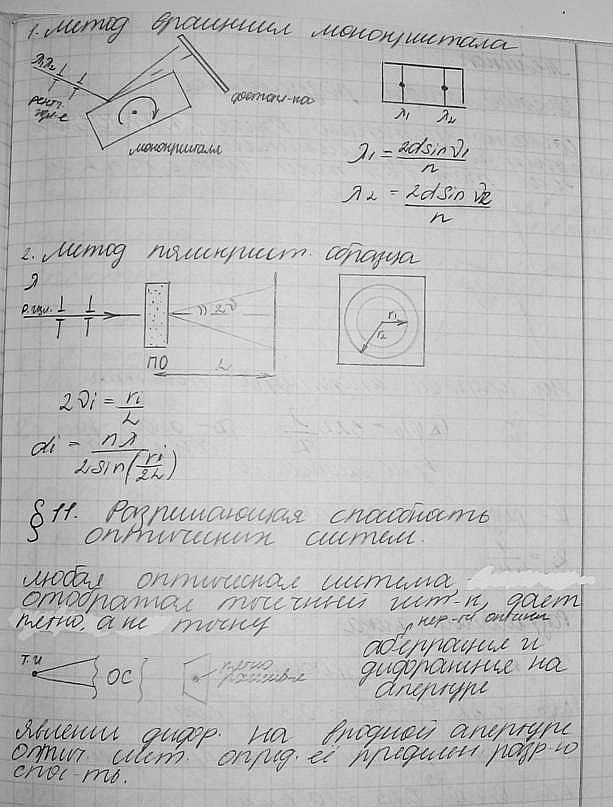 1. Метод вращения монокристалла
λ1λ2
рент.
изл-е
фотопл-ка
монокристалл
λ1 λ2
λ1 = 2d sin ϑ1 / n
λ2 = 2d sin ϑ2 / n
2. Метод поликрист. образца
λ
р.изл.
2ϑ
r1
r2
ПО
L
2ϑi = ri / L
di = nλ / 2 sin(ri / 2L)
§ 11. Разрешающая способность
оптических систем.
Любая оптическая система
отображая точечный ист-к, дает
пятно, а не точку
нер-ки оптики
аберрация и
дифракция на
апертуре
Т.И
ОС
пятно
рассеян-я
явлении дифр. на входной апертуре
оптич. сист. опред. её предел разр-ю
спос-ть.